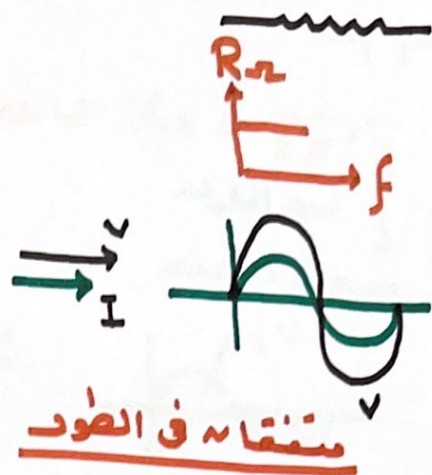 RΩ
f
V
I
V
متفقان فى الطور